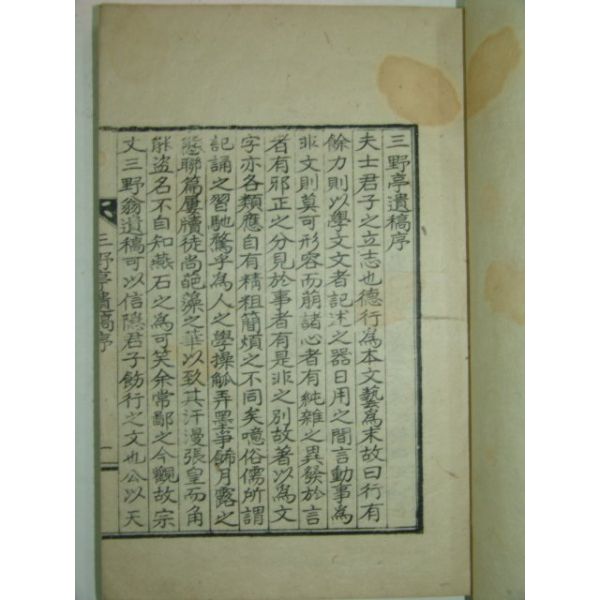 三野亭遺稿序
夫士君子之立志也德行爲本文藝爲末故曰行有
餘力則以學文文者記述之器日用之間言動事爲
非文則莫可形容而萠諸心者有純雜之異發於言
者有邪正之分見於事者有是非之別故著以爲文
字亦各類應自有精粗簡煩之不同矣噫俗儒所謂
記誦之習馳騖乎爲人之學操觚弄墨爭餙月露之
聯篇屢牘徒尚葩藻之華以致其汗漫張皇而角
能盜名不自知燕石之爲可笑余常鄙之今觀故宗
丈三野翁遺稿可以信隱君子餙行之文也公以天
三野亭遺稿序
一